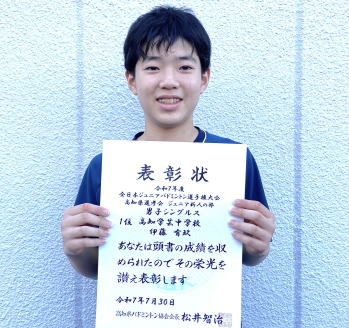 表彰状
令和7年度
全日本ジュニアバドミントン選手権大会
高知県選考会 ジュニア新人の部
男子シングルス
1位 高知学芸中学校
伊藤
あなたは頭書の成績を収
められたのでその栄光を
讃え表彰します
令和7年7月30日
高知県バドミントン協会会長 松井智治